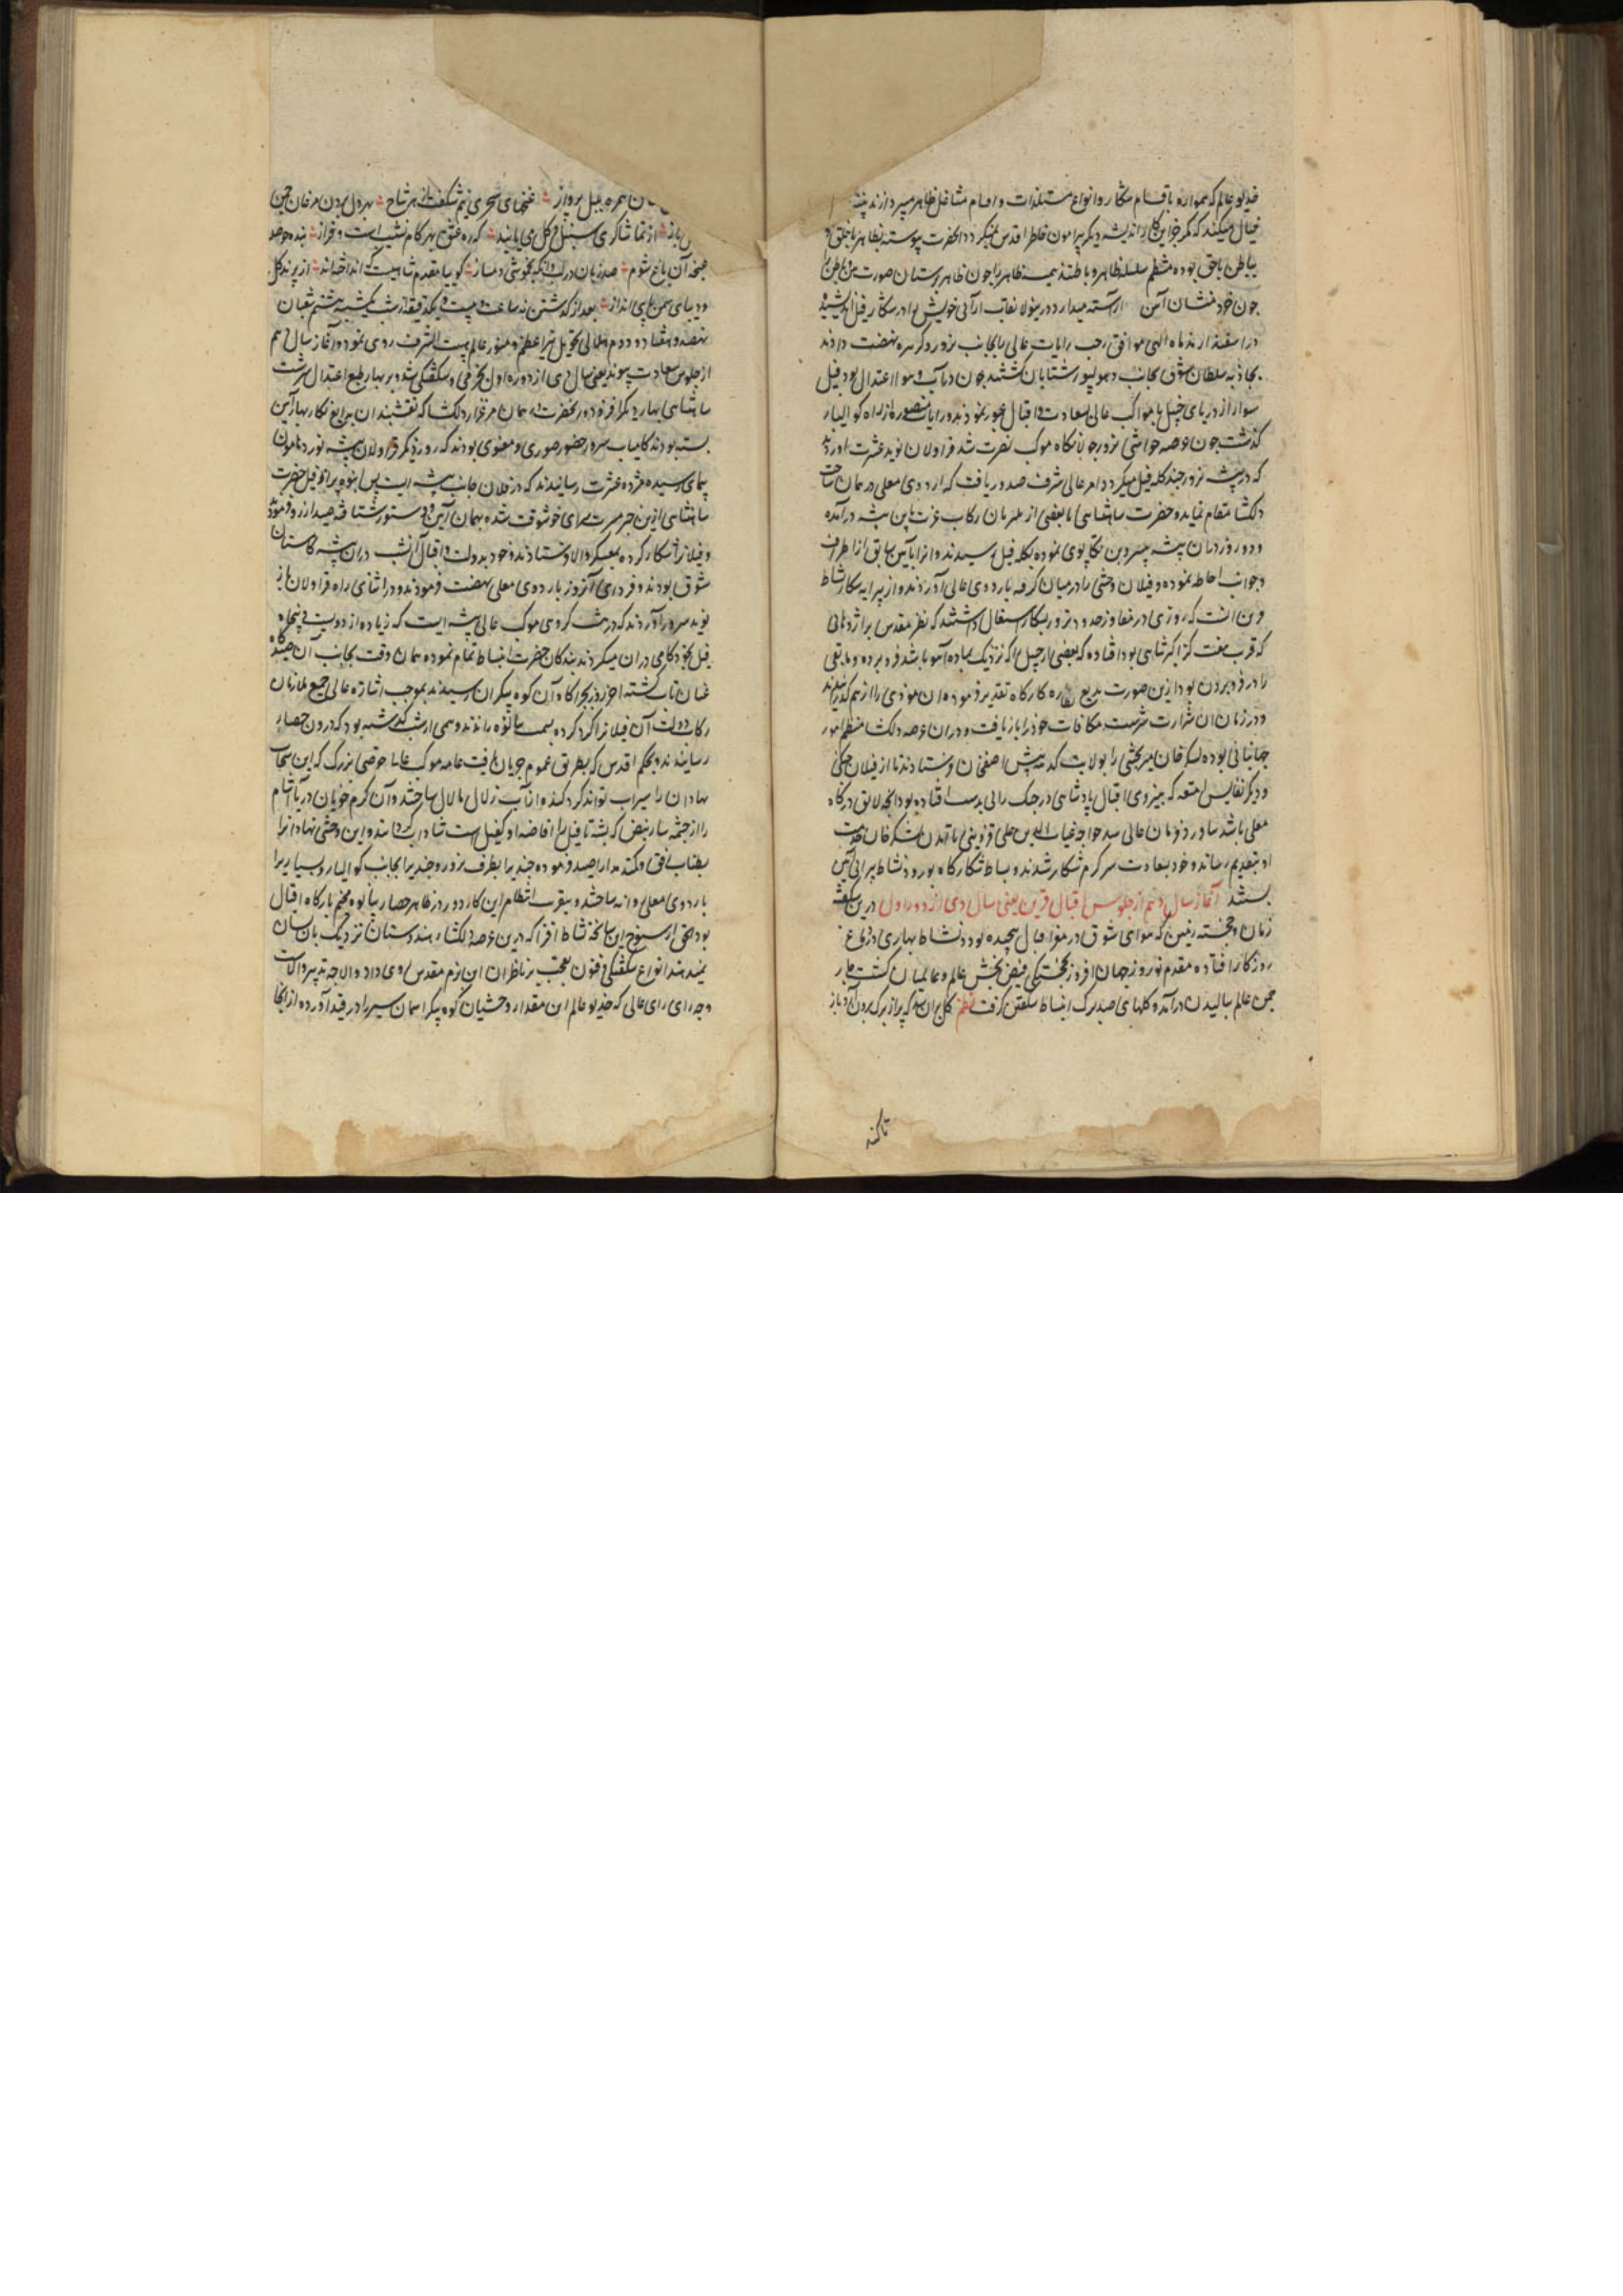 خدیو عالم که همواره باقسام شکار و انواع مستلذات و اقسام مشاغل ظاهر میپردازند
خیال میکنند که مگر جز این کار اندیشه دیگر پیرامون خاطر اقدس نمیگردد آنحضرت پیوسته بظاهر با خلق و
بباطن با حق بوده منتظم سلسله ظاهر و باطنند ظاهر را چون ظاهر پرستان صورت و باطن را
چون خود منشان آراسته میدارد درینولا نقاب آرائی خویش را در شکار فیل اندیشیده
در اسفندارمذ ماه الهی موافق رجب رایات عالی را بجانب نرور و کرهره نهضت دادند
بجاذبه سلطان شوق بجانب دهولپور شتابان گشتند چون در آب و هوا اعتدال بود فیل
سوار از دریای چنبل با مواکب عالی بسعادت و اقبال عبور نمودند و رایات منصوره از راه گوالیار
گذشت چون عرصه حواشی نرور جولانگاه موکب نصرت شد قراولان نوید عشرت آوردند
که در بیشه نرور چند کله فیل میگردد امر عالی شرف صدور یافت که اردوی معلی در همان ساحت
دلگشا مقام نماید و حضرت شاهنشاهی با بعضی از ملتزمان رکاب عزت باین بیشه درآمده
و دو روز در آن بیشه تکاپوی نموده بکله فیل رسیدند و آنرا بآیین سابق از اطراف
و جوانب احاطه نموده و فیلان وحشی را در میان گرفته باردوی عالی آوردند و از پیرایه شکار نشاط
که روزی در حدود نرور بشکار اشتغال داشتند که نظر مقدس بر اژدهائی
که قرب هفت گز اکبرشاهی بود افتاده که بعضی از چیل را که نزدیک بماده آهو باشد فرو برده و مابقی
را در فرو بردن بود ازین صورت بدیع نظاره کارگاه تقدیر فرموده آن موذی را از هم گذرانیدند
و در زمان آن شرارت سرشت مکافات خود را باز یافت و در آن عرصه دلگشا منتظم امور
جهانبانی بوده لشکر خان میر بخشی را بولایت کدهه پیش آصف خان فرستادند تا از فیلان جنگی
و دیگر نفایس امتعه که بنیروی اقبال پادشاهی در جنگ رانی بدست افتاده بود آنچه لایق درگاه
معلی باشد بیاورد و فرمان عالی شد خواجه غیاث الدین علی قزوینی تا آمدن لشکر خان خدمت
او بتقدیم رساند و خود بسعادت سرگرم شکار شدند و بساط شکارگاه بورود نشاط پیرائی آیین
بستند آغاز سال دهم از جلوس اقبال قرین یعنی سال دی از دور اول درین شکفته
زمان و خجسته زمین که هوای شوق در مزاج اقبال پیچیده بود و نشاط بهاری در دماغ
روزگار افتاده مقدم نوروز جهان افروز بخجستگی فیض بخش عالم و عالمیان گشت بهار
چمن عالم ببالیدن درآمد و گلهای صد برگ انبساط شکفتن گرفت نظم گل بر آن شد که پر از برگ برون آرد باز
تا کند
همره بلبل پرواز غنچهای سحری نیم شکفته از هر شاخ بهر دل بردن مرغان چمن
از تماشاگری سنبل و گل می یابند که ره عشق بهر گام نشیب است و فراز بنده وحد
غنچه آن باغ شوم صد زبان در لب و آنگه بخموشی دمساز گوییا مقدم شاهیست که انداخته اند از پرند گل
و دیبای سمن پای انداز بعد از گذشتن نه ساعت و بیست و یک دقیقه از شب یکشنبه هشتم شعبان
نهصد و هفتاد و دوم هلالی تحویل نیر اعظم و منور عالم به بیت الشرف روی نمود و آغاز سال دهم
از جلوس سعادت پیوند یعنی سال دی از دوره اول بخرمی و شکفتگی شد و بر بهار طبع اعتدال سرشت
شاهنشاهی بهار دیگر افزود و آنحضرت در همان مرغزار دلگشا که نقشبندان بدایع نگار بهار آیین
بسته بودند کامیاب سرور حضور صوری و معنوی بودند که روز دیگر قراولان بیشه نورد هامون
پیمای رسیده مژده عشرت رسانیدند که در فلان جانب بیشه ایست بس انبوه پر از فیل حضرت
شاهنشاهی ازین خبر مسرت سرای خوشوقت شده بهمان آیین و دستور شتافته صید آرزو فرمودند
و فیلانرا شکار کرده بمعسکر والا فرستادند و خود بدولت و اقبال آن شب در آن بیشه گلستان
شوق بودند و فردای آنروز باردوی معلی نهضت فرمودند و در اثنای راه قراولان باز
نوید سرور آوردند که در هشت کروهی موکب عالی بیشه ایست که زیاده از دویست و پنجاه
فیل بخودکامی در آن میگردند بندگان حضرت انبساط تمام نموده همان وقت بجانب آن صیدگاه
عنان تاب گشته آخر روز بچراگاه آن کوه پیکران رسیدند بموجب اشارت عالی جمیع ملازمان
رکاب دولت آن فیلانرا گرد کرده بسمت پانوه راندند و همی از شب گذشته بود که درون حصار
رسانیدند و بحکم اقدس که بطریق عموم جریان یافت عامه موکب عالی حوضی بزرگ که این سحاب
نهادان را سیراب تواند کرد کنده از آب زلال مالامال ساختند و آن گرم خویان دریا آشام
را از چشمه سار فیض که پشه تا فیل را افاضه او کفیل است شاداب گردانیدند و این وحشی نهادان را
بطناب افق و کمند مدارا صید فرموده چندی را بطرف نرور و چندی را بجانب گوالیار و بسیاری را
باردوی معلی روانه ساختند و بتقریب انتظام این کار دو روز در ظاهر حصار پانوه مخیم بارگاه اقبال
بود الحق از سنوح این سانحه نشاط افزا که درین عرصه دلگشاء هندوستان نزدیک بآن نشان
نمیدهند انواع شگفتگی و فنون تعجب بر ناظران این بزم مقدس روی داد و الا چه تدبیر والاست
و چه رای رای عالی که خدیو عالم این مقدار وحشیان کوه پیکر آسمان سیر را در قید آورده از آنجا